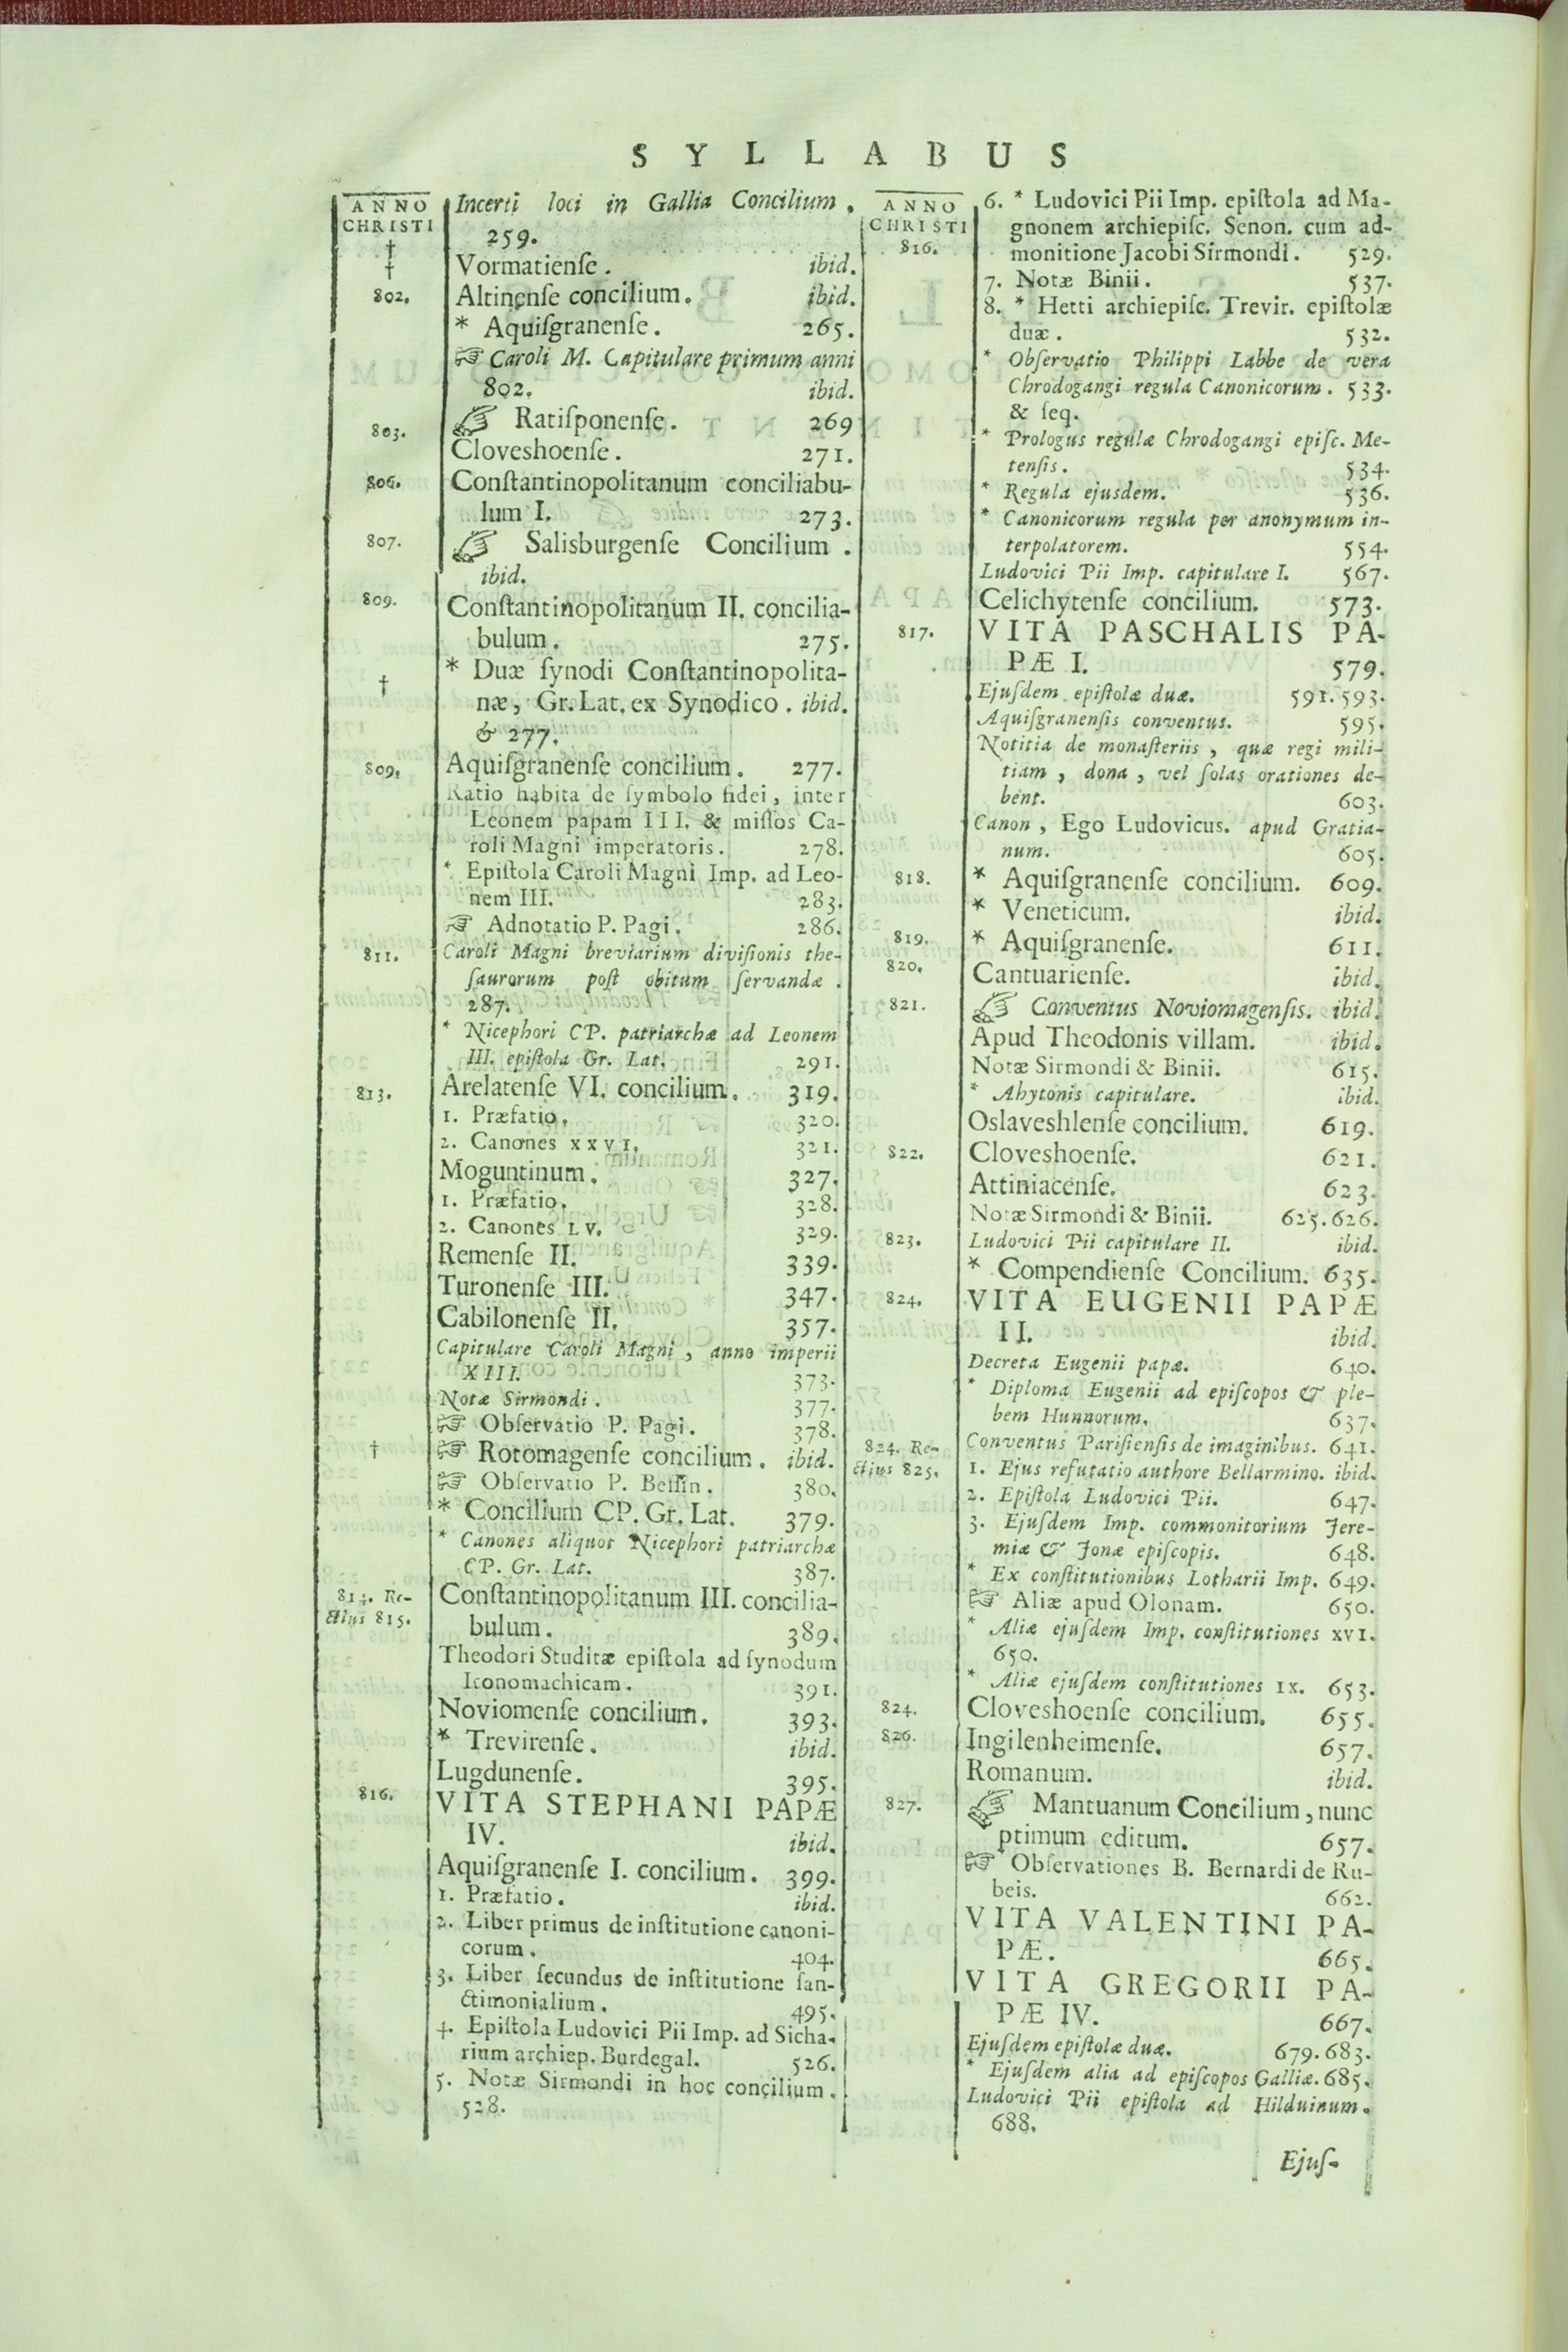 SYLLABUS
ANNO
CHRISTI
†
Incerti loci in Gallia Concilium.
259.
† Vormatienſe. ibid.
802. Altinenſe concilium. ibid.
* Aquiſgranenſe. 265.
☞ Caroli M. Capitulare primum anni
802. ibid.
803. ☞ Ratiſponenſe. 269
Cloveshoenſe. 271.
806. Conſtantinopolitanum conciliabu-
lum I. 273.
807. ☞ Salisburgenſe Concilium.
ibid.
809. Conſtantinopolitanum II. concilia-
bulum. 275.
† * Duæ ſynodi Conſtantinopolita-
næ, Gr. Lat. ex Synodico. ibid.
& 277.
809. Aquiſgranenſe concilium. 277.
Ratio habita de ſymbolo fidei, inter
Leonem papam III. & miſſos Ca-
roli Magni imperatoris. 278.
* Epiſtola Caroli Magni Imp. ad Leo-
nem III. 283.
☞ Adnotatio P. Pagi. 286.
811. Caroli Magni breviarium diviſionis the-
ſaurorum poſt obitum ſervandæ.
287.
* Nicephori CP. patriarchæ ad Leonem
III. epiſtola Gr. Lat. 291.
813. Arelatenſe VI. concilium. 319.
1. Præfatio. 320.
2. Canones XXVI. 321.
Moguntinum. 327.
1. Præfatio. 328.
2. Canones LV. 329.
Remenſe II. 339.
Turonenſe III. 347.
Cabilonenſe II. 357.
Capitulare Caroli Magni, anno imperii
XIII. 373.
Notæ Sirmondi. 377.
☞ Obſervatio P. Pagi. 378.
† ☞ Rotomagenſe concilium. ibid.
☞ Obſervatio P. Beſſin. 380.
* Concilium CP. Gr. Lat. 379.
* Canones aliquot Nicephori patriarchæ
CP. Gr. Lat. 387.
814. Re-
ctius 815.
Conſtantinopolitanum III. concilia-
bulum. 389.
Theodori Studitæ epiſtola ad ſynodum
Iconomachicam. 391.
Noviomenſe concilium. 393.
* Trevirenſe. ibid.
Lugdunenſe. 395.
816. VITA STEPHANI PAPÆ
IV. ibid.
Aquiſgranenſe I. concilium. 399.
1. Præfatio. ibid.
2. Liber primus de inſtitutione canoni-
corum. 404.
3. Liber ſecundus de inſtitutione ſan-
ctimonialium. 495.
4. Epiſtola Ludovici Pii Imp. ad Sicha-
rium archiep. Burdegal. 526.
5. Notæ Sirmondi in hoc concilium.
528.
ANNO
CHRISTI
816.
6. * Ludovici Pii Imp. epiſtola ad Ma-
gnonem archiepiſc. Senon. cum ad-
monitione Jacobi Sirmondi. 529.
7. Notæ Binii. 537.
8. * Hetti archiepiſc. Trevir. epiſtolæ
duæ. 532.
* Obſervatio Philippi Labbe de vera
Chrodogangi regula Canonicorum. 533.
& ſeq.
* Prologus regulæ Chrodogangi epiſc. Me-
tenſis. 534.
* Regula ejusdem. 536.
* Canonicorum regula per anonymum in-
terpolatorem. 554.
Ludovici Pii Imp. capitulare I. 567.
Celichytenſe concilium. 573.
817. VITA PASCHALIS PA-
PÆ I. 579.
Ejuſdem epiſtolæ duæ. 591. 593.
Aquiſgranenſis conventus. 595.
Notitia de monaſteriis, quæ regi mili-
tiam, dona, vel ſolas orationes de-
bent. 603.
Canon, Ego Ludovicus. apud Gratia-
num. 605.
818. * Aquiſgranenſe concilium. 609.
* Veneticum. ibid.
819. * Aquiſgranenſe. 611.
820. Cantuarienſe. ibid.
821. ☞ Conventus Noviomagenſis. ibid.
Apud Theodonis villam. ibid.
Notæ Sirmondi & Binii. 615.
* Ahytonis capitulare. ibid.
Oslaveshlenſe concilium. 619.
822. Cloveshoenſe. 621.
Attiniacenſe. 623.
Notæ Sirmondi & Binii. 625. 626.
823. Ludovici Pii capitulare II. ibid.
* Compendienſe Concilium. 635.
824. VITA EUGENII PAPÆ
II. ibid.
Decreta Eugenii papæ. 640.
* Diploma Eugenii ad epiſcopos & ple-
bem Hunnorum. 637.
824. Re-
ctius 825.
Conventus Pariſienſis de imaginibus. 641.
1. Ejus refutatio authore Bellarmino. ibid.
2. Epiſtola Ludovici Pii. 647.
3. Ejuſdem Imp. commonitorium Jere-
miæ & Jonæ epiſcopis. 648.
* Ex conſtitutionibus Lotharii Imp. 649.
☞ Aliæ apud Olonam. 650.
* Aliæ ejuſdem Imp. conſtitutiones XVI.
650.
* Aliæ ejuſdem conſtitutiones IX. 653.
824. Cloveshoenſe concilium. 655.
826. Ingilenheimenſe. 657.
Romanum. ibid.
827. ☞ Mantuanum Concilium, nunc
primum editum. 657.
☞ Obſervationes B. Bernardi de Ru-
beis. 662.
VITA VALENTINI PA-
PÆ. 665.
VITA GREGORII PA-
PÆ IV. 667.
Ejuſdem epiſtolæ duæ. 679. 683.
* Ejuſdem alia ad epiſcopos Galliæ. 685.
Ludovici Pii epiſtola ad Hilduinum.
688.
Ejuſ-